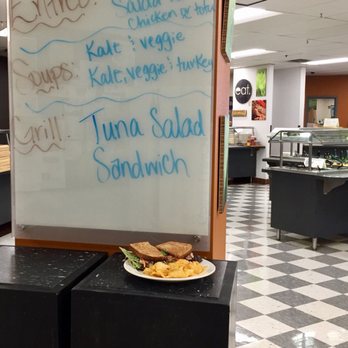 Entree:
Salad
Chicken w/
Soups:
Kale & veggie
Kale, veggie & turkey
Grill:
Tuna Salad
Sandwich
eat.